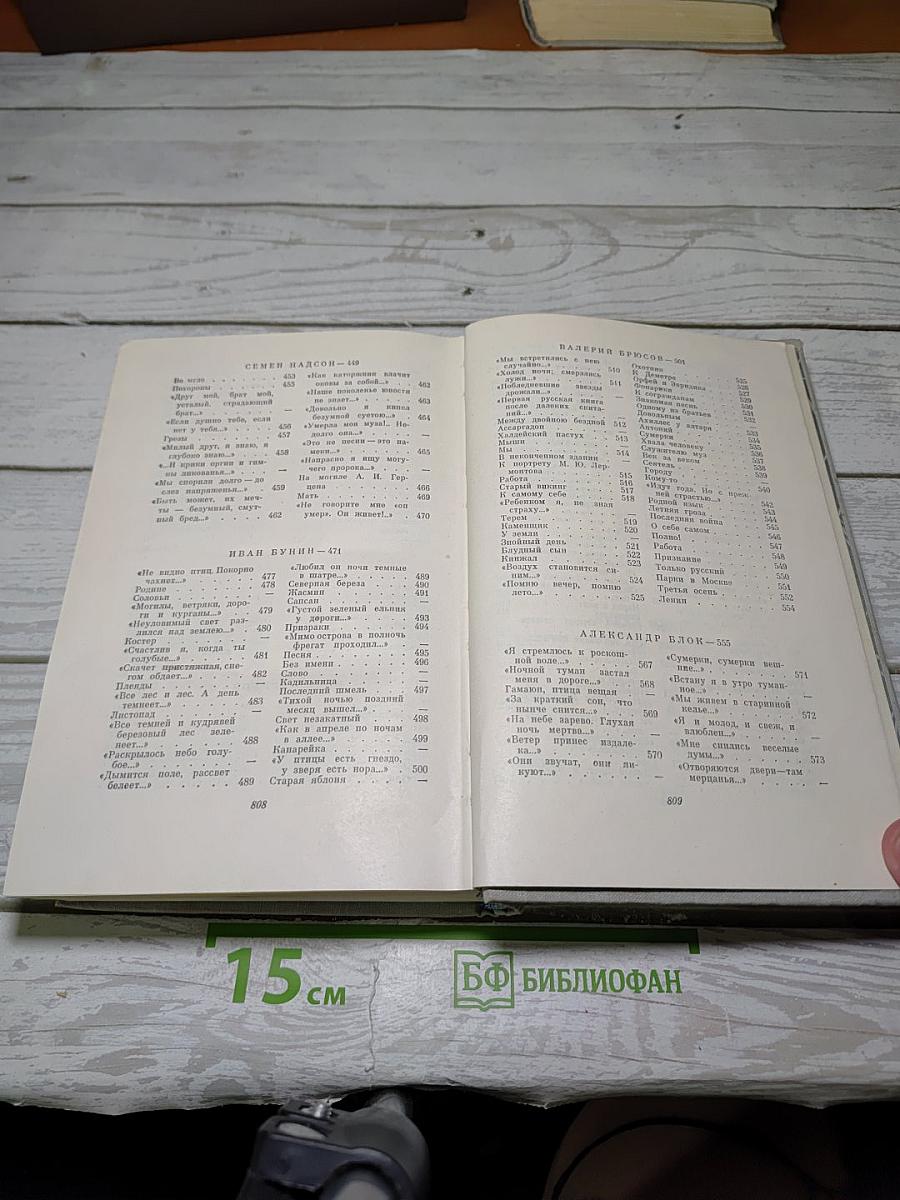 СЕМЕН НАДСОН — 449
Во мгле . . . . . . . . 453
Похороны . . . . . . . 453
«Друг мой, брат мой,
усталый, страдающий
брат...» . . . . . . . —
«Если душно тебе, если
нет у тебя...» . . . . 456
Грезы . . . . . . . . 457
«Милый друг, я знаю, я
глубоко знаю...» . . . 458
«...И крики оргии и гим-
ны ликованья...» . . —
«Мы спорили долго — до
слез напряженья...» . . 459
«Быть может, их меч-
ты — безумный, смут-
ный бред...» . . . . . 462
«Как каторжник влачит
оковы за собой...» . . 463
«Наше поколенье юности
не знает...» . . . . . 463
«Довольно я кипел
безумной суетою...» . . 464
«Умерла моя муза!.. Не-
долго она...» . . . . —
«Это не песни — это на-
меки...» . . . . . . . 465
«Напрасно я ищу могу-
чего пророка...» . . . —
На могиле А. И. Гер-
цена . . . . . . . . 466
Мать . . . . . . . . 469
«Не говорите мне «он
умер». Он живет!..» . . 470
ИВАН БУНИН — 471
«Не видно птиц. Покорно
чахнет...» . . . . . . 477
Родине . . . . . . . . 478
Соловьи . . . . . . . —
«Могилы, ветряки, доро-
ги и курганы...» . . . 479
«Неуловимый свет раз-
лился над землею...» . 480
Костер . . . . . . . . —
«Счастлив я, когда ты
голубые...» . . . . . 481
«Скачет пристяжная, сне-
гом обдает...» . . . . 482
Плеяды . . . . . . . . —
«Все лес и лес. А день
темнеет...» . . . . . 483
Листопад . . . . . . . —
«Все темней и кудрявей
березовый лес зеле-
неет...» . . . . . . . 488
«Раскрылось небо голу-
бое...» . . . . . . . —
«Дымится поле, рассвет
белеет...» . . . . . . 489
«Любил он ночи темные
в шатре...» . . . . . 489
Северная береза . . . . 490
Жасмин . . . . . . . . 491
Сапсан . . . . . . . . —
«Густой зеленый ельник
у дороги...» . . . . . 493
Призраки . . . . . . . 494
«Мимо острова в полночь
фрегат проходил...» . . —
Песня . . . . . . . . 495
Без имени . . . . . . 496
Слово . . . . . . . . —
Кадильница . . . . . . —
Последний шмель . . . . 497
«Тихой ночью поздний
месяц вышел...» . . . —
Свет незакатный . . . . 498
«Как в апреле по ночам
в аллее...» . . . . . 499
Канарейка . . . . . . —
«У птицы есть гнездо,
у зверя есть нора...» . 500
Старая яблоня . . . . —
808
ВАЛЕРИЙ БРЮСОВ — 501
«Мы встретились с нею
случайно...» . . . . . 510
«Холод ночи; смерзлись
лужи...» . . . . . . . 511
«Побледневшие звезды
дрожали...» . . . . . —
«Первая русская книга
после далеких скита-
ний...» . . . . . . . —
Между двойною бездной 512
Ассаргадон . . . . . . —
Халдейский пастух . . . 513
Мыши . . . . . . . . —
Мы . . . . . . . . . 514
В неконченном здании . . —
К портрету М. Ю. Лер-
монтова . . . . . . . 515
Работа . . . . . . . . 516
Старый викинг . . . . 517
К самому себе . . . . 518
«Ребенком я, не зная
страху...» . . . . . . —
Терем . . . . . . . . 519
Каменщик . . . . . . . 520
У земли . . . . . . . —
Знойный день . . . . . 521
Блудный сын . . . . . 522
Кинжал . . . . . . . . 523
«Воздух становится си-
ним...» . . . . . . . 524
«Помню вечер, помню
лето...» . . . . . . . 525
Охотник
К Деметре . . . 525
Орфей и Эвридика . . . 526
Фонарики . . . 527
К согражданам . . . 529
Знакомая песнь . . . 530
Одному из братьев . . . 531
Довольным . . . 532
Ахиллес у алтаря
Антоний . . . 533
Сумерки . . . 534
Хвала человеку . . . 535
Служителю муз . . . 536
Век за веком . . . 537
Сеятель . . . 538
Городу . . . 539
Кому-то
«Идут года. Но с преж-
ней страстью...» . . . 540
Родной язык . . . 542
Летняя гроза . . . 543
Последняя война . . . 544
О себе самом . . . 545
Полно! . . . 546
Работа . . . 547
Признание . . . 548
Только русский . . . 549
Парки в Москве . . . 550
Третья осень . . . 551
Ленин . . . 552
554
АЛЕКСАНДР БЛОК — 555
«Я стремлюсь к роскош-
ной воле...» . . . . . 567
«Ночной туман застал
меня в дороге...» . . . 568
Гамаюн, птица вещая . . —
«За краткий сон, что
нынче снится...» . . . 569
«На небе зарево. Глухая
ночь мертва...» . . . —
«Ветер принес издале-
ка...» . . . . . . . . 570
«Они звучат, они ли-
куют...» . . . . . . . —
«Сумерки, сумерки веш-
ние...» . . . . . . . 571
«Встану я в утро туман-
ное...» . . . . . . . —
«Мы живем в старинной
келье...» . . . . . . 572
«Я и молод, и свеж, и
влюблен...» . . . . . —
«Мне снились веселые
думы...» . . . . . . . 573
«Отворяются двери — там
мерцанья...» . . . . . —
809
15 см
БФ БИБЛИОФАН